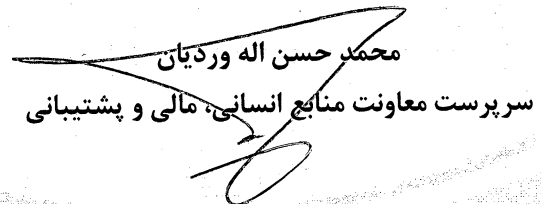 محمد حسن اله وردیان
سرپرست معاونت منابع انسانی، مالی و پشتیبانی